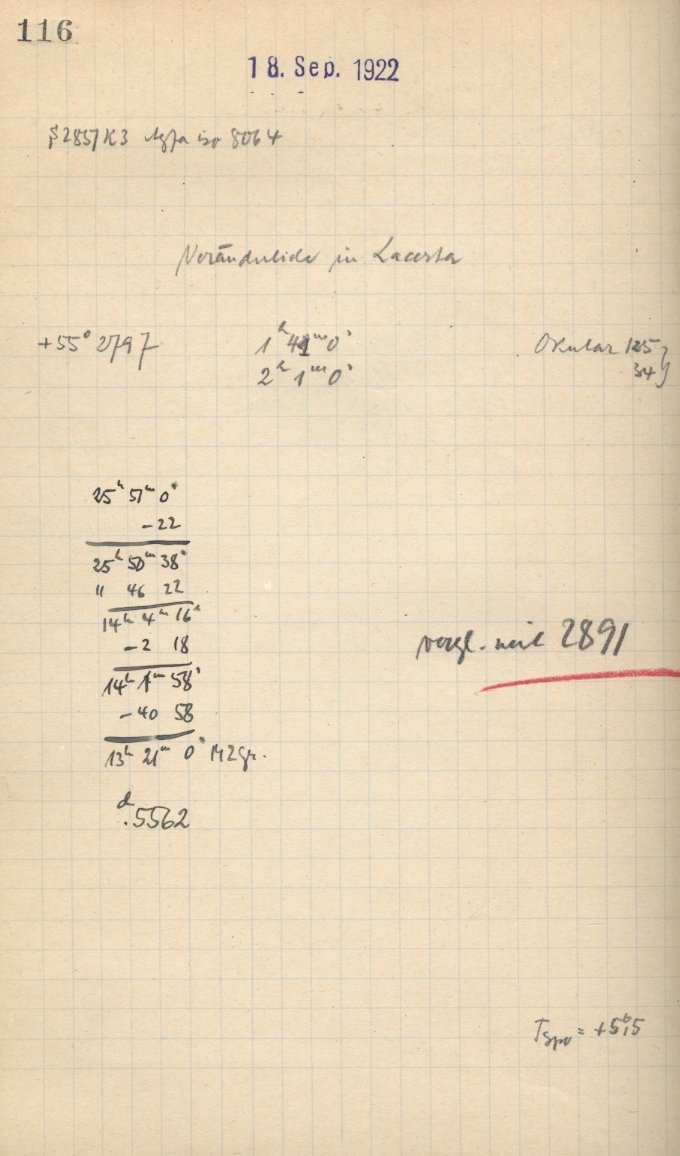 116
18. Sep. 1922
§2857 K3 Agfa iso 8064
Veränderliche in Lacerta
+55° 2797 1ʰ 41ᵐ 0ˢ Okular 125
2ʰ 1ᵐ 0ˢ 34
25ʰ 51ᵐ 0ˢ
-22
25ʰ 50ᵐ 38ˢ
" 46 22
14ʰ 4ᵐ 16ˢ
-2 18
14ʰ 1ᵐ 58ˢ
-40 58
13ʰ 21ᵐ 0ˢ MZGr.
ᵈ.5562
vergl. mit 2891